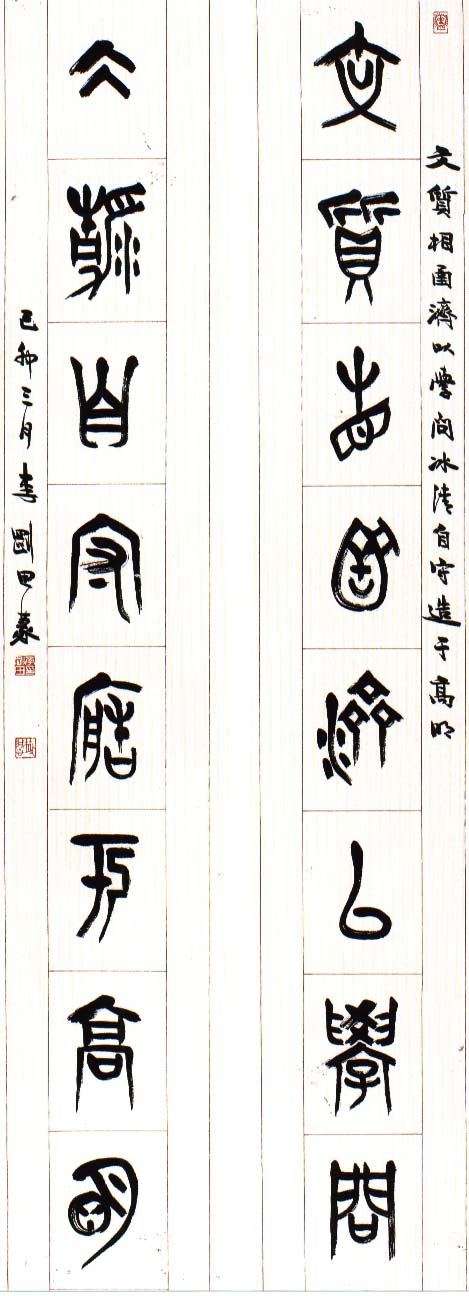 文質相圅濟以學問冰清自守造于高明
文質相圅濟以學問
冰清自守造于高明
己卯三月李國篆